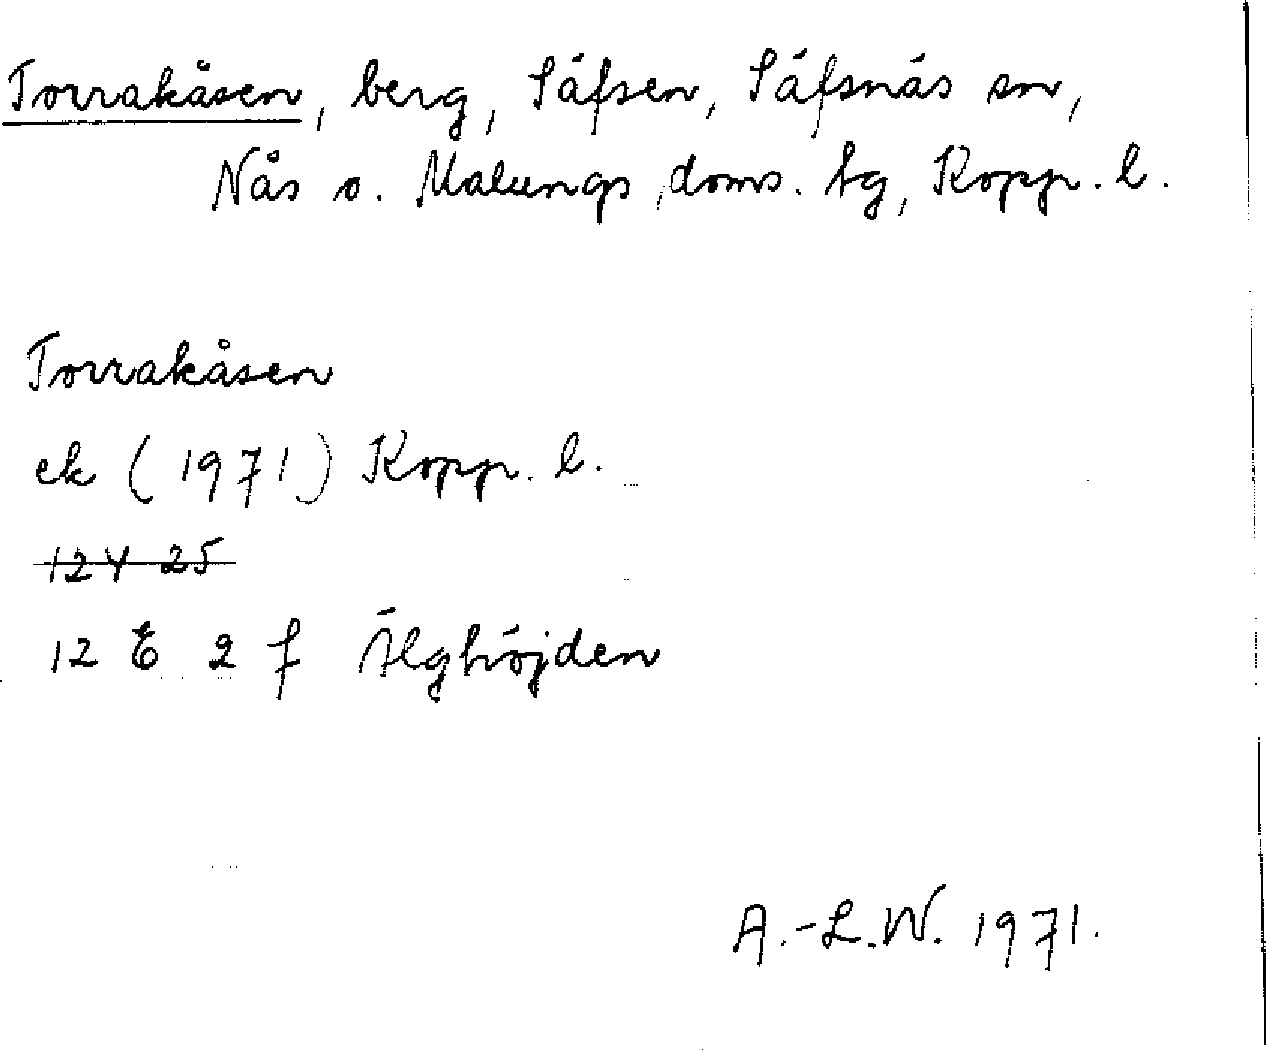 Torrakåsen, berg, Säfsen, Säfsnäs sn,
Nås o. Malungs doms. tg, Kopp. l.
Torrakåsen
ek (1971) Kopp. l.
12 Y 25
12 E 2 f Älghöjden
A.-L.W. 1971.